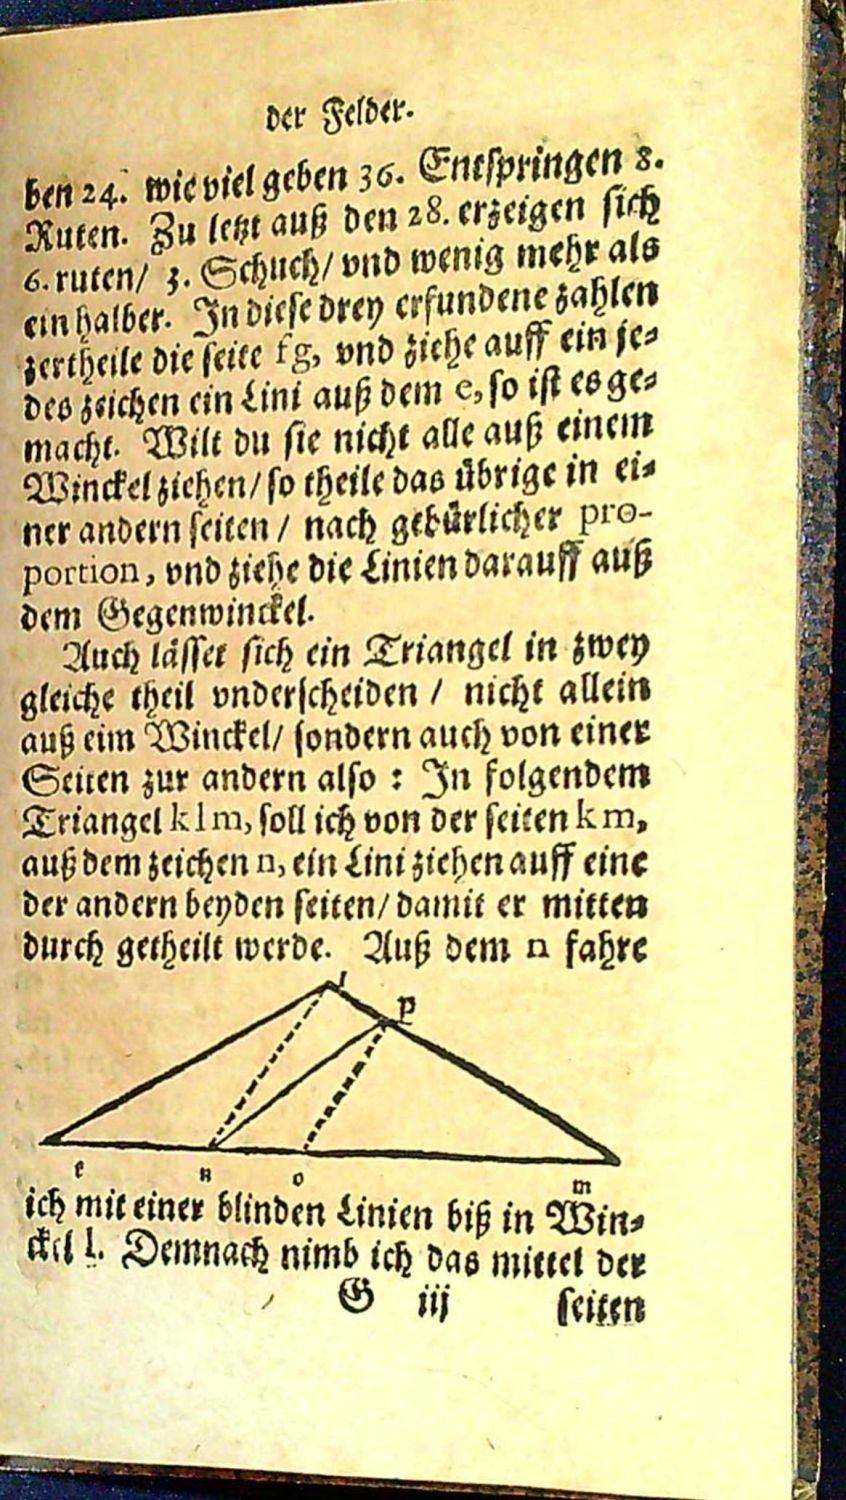 der Felder.
ben 24. wie viel geben 36. Entspringen 8.
Ruten. Zu letzt auß den 28. erzeigen sich
6. ruten/ 3. Schuch/ vnd wenig mehr als
ein halber. In diese drey erfundene zahlen
zertheile die seite fg, vnd ziehe auff ein je-
des zeichen ein Lini auß dem e, so ist es ge-
macht. Wilt du sie nicht alle auß einem
Winckel ziehen/ so theile das übrige in ei-
ner andern seiten / nach gebürlicher pro-
portion, vnd ziehe die Linien darauff auß
dem Gegenwinckel.
Auch lässet sich ein Triangel in zwey
gleiche theil vnderscheiden / nicht allein
auß eim Winckel/ sondern auch von einer
Seiten zur andern also : In folgendem
Triangel klm, soll ich von der seiten km,
auß dem zeichen n, ein Lini ziehen auff eine
der andern beyden seiten/ damit er mitten
durch getheilt werde. Auß dem n fahre
l
p
k n o m
ich mit einer blinden Linien biß in Win-
ckel l. Demnach nimb ich das mittel der
G iij seiten